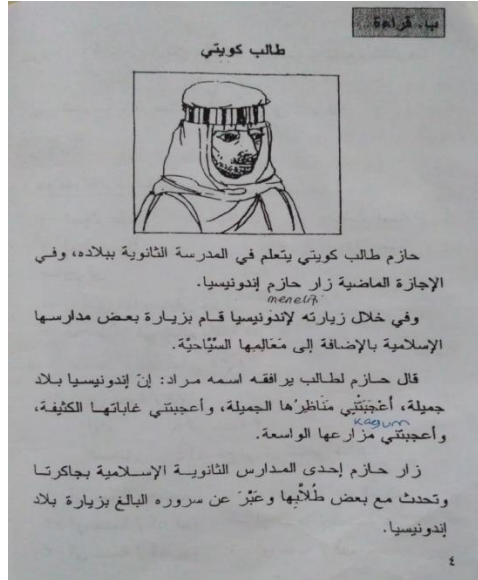 ب. قراءة
طالب كويتي
حازم طالب كويتي يتعلم في المدرسة الثانوية ببلاده، وفي
الإجازة الماضية زار حازم إندونيسيا.
وفي خلال زيارته لإندونيسيا قام بزيارة بعض مدارسها
الإسلامية بالإضافة إلى مَعَالِمِها السِّيَّاحِيَّة.
قال حازم لطالب يرافقه اسمه مراد: إنّ إندونيسيا بلاد
جميلة، أَعْجَبَتْنِي مَنَاظِرُها الجميلة، وأعجبتني غاباتها الكثيفة،
kagum
وأعجبتني مزارعها الواسعة.
زار حازم إحدى المدارس الثانوية الإسلامية بجاكرتا
وتحدث مع بعض طُلَّابِها وعَبَّرَ عن سروره البالغ بزيارة بلاد
إندونيسيا.
٤